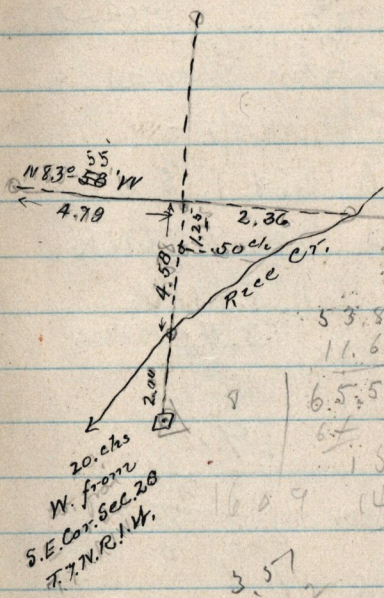 55
N 83° 53' W
4.79
2.36
11.25
.50 ch
4.58
Race Cr.
2.00
20. chs
W. from
S.E. Cor. Sec. 28
T. 7. N. R. 1. W.
53.8
11.6
8
65.5
3.57